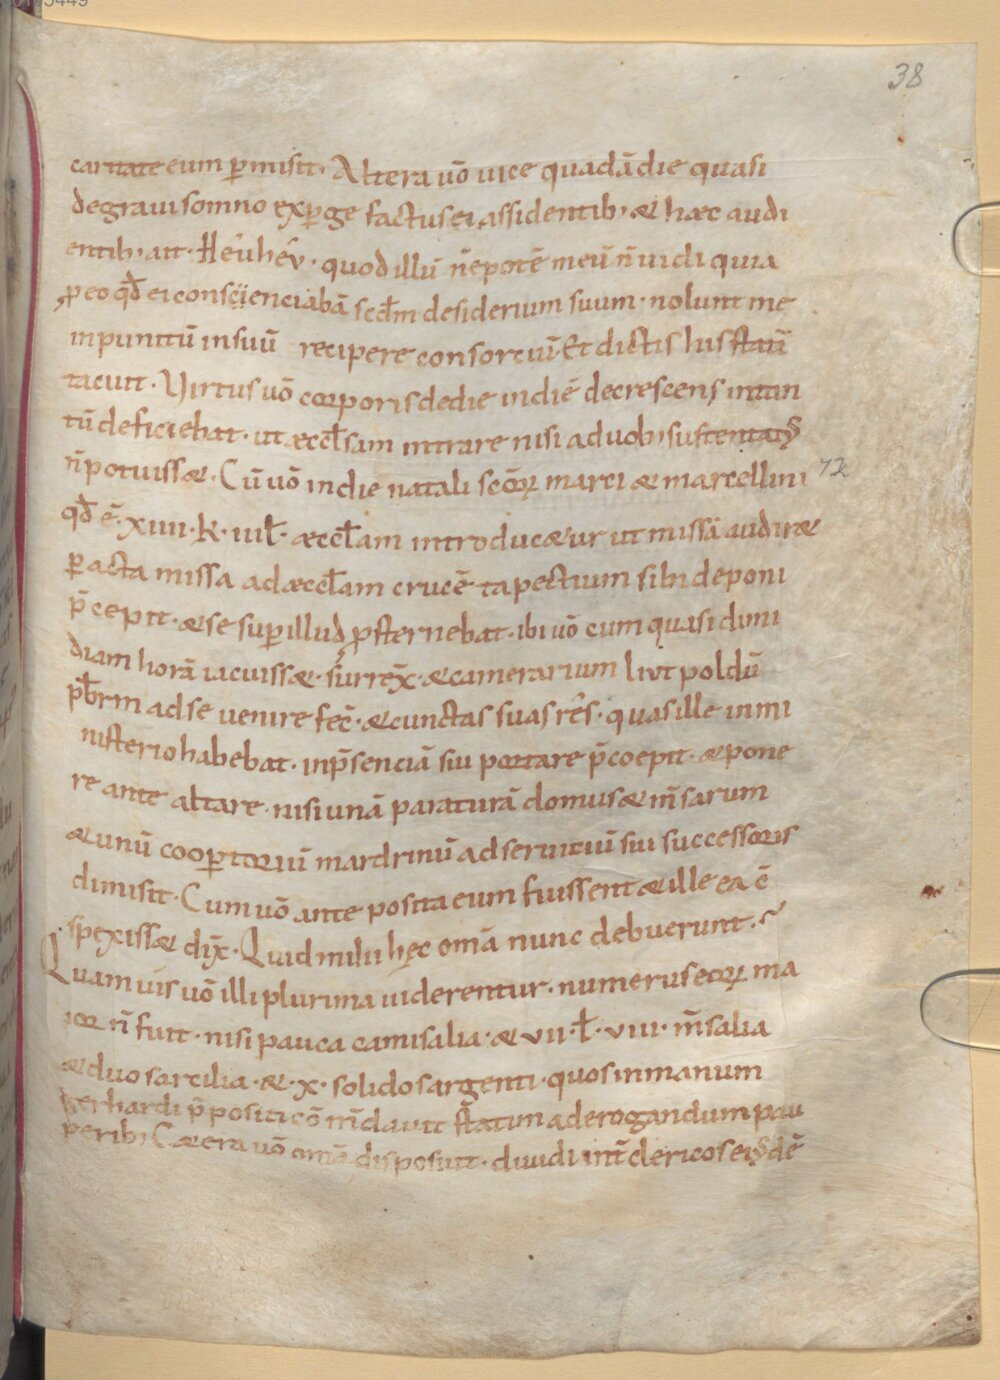 38
caritate eum ꝑmisit. Altera uō uice quadā die quasi
degraui somno exꝑge factus ei assidentib; & hæc audi
entib; ait. Heû heû. quod illū nepotē meū n̄ uidi quia
ꝓ eo qđ ei consciencia bā scdm desiderium suum. nolunt me
inpunitū insuū recipere consorciū. Et dictis his statī
tacuit. Virtus uō corporis dedie indiē decrescens intan
tū deficiebat. ut æccłsam intrare nisi aduob; sustentatꝰ
n̄ potuiss&. Cū uō indie natali scōꝝ marci & marcellini
72
qđ ē. xiiii. k. iuł. æccłam introduc&ur ut missā audir&
ꝑacta missa ad æccłam crucē tapectium sibi deponi
p̄cepit. & se suꝑ illud ꝓsternebat. ibi uō cum quasi dimi
diam horā iacuiss&. surrex̄. & camerarium liutpoldū
pb̄rm adse uenire fec̄. & cunctas suas rēs. quas ille inmi
nisterio habebat. inp̄senciā siu portare p̄coepit. & pone
re ante altare. nisi unā paraturā domus & m̄sarum
& unū cooꝑtoriū mardrinū ad seruitiū sui successoris
dimisit. Cum uō ante posita eum fuissent & ille ea c̄
spexiss& dix̄. Quid mihi hęc omīa nunc debuerunt.
Quam uis uō illi plurima uiderentur. numerus eoꝝ ma
ior n̄ fuit. nisi pauca camisalia. & vii. ł. viii. m̄salia
& duo sarcilia. & .x. solidos argenti. quos inmanum
gerhardi p̄positi cōm̄dauit statim ad erogandum pau
perib; C&era uō omīa disposuit. diuidi int̄ clericos eiꝰdē